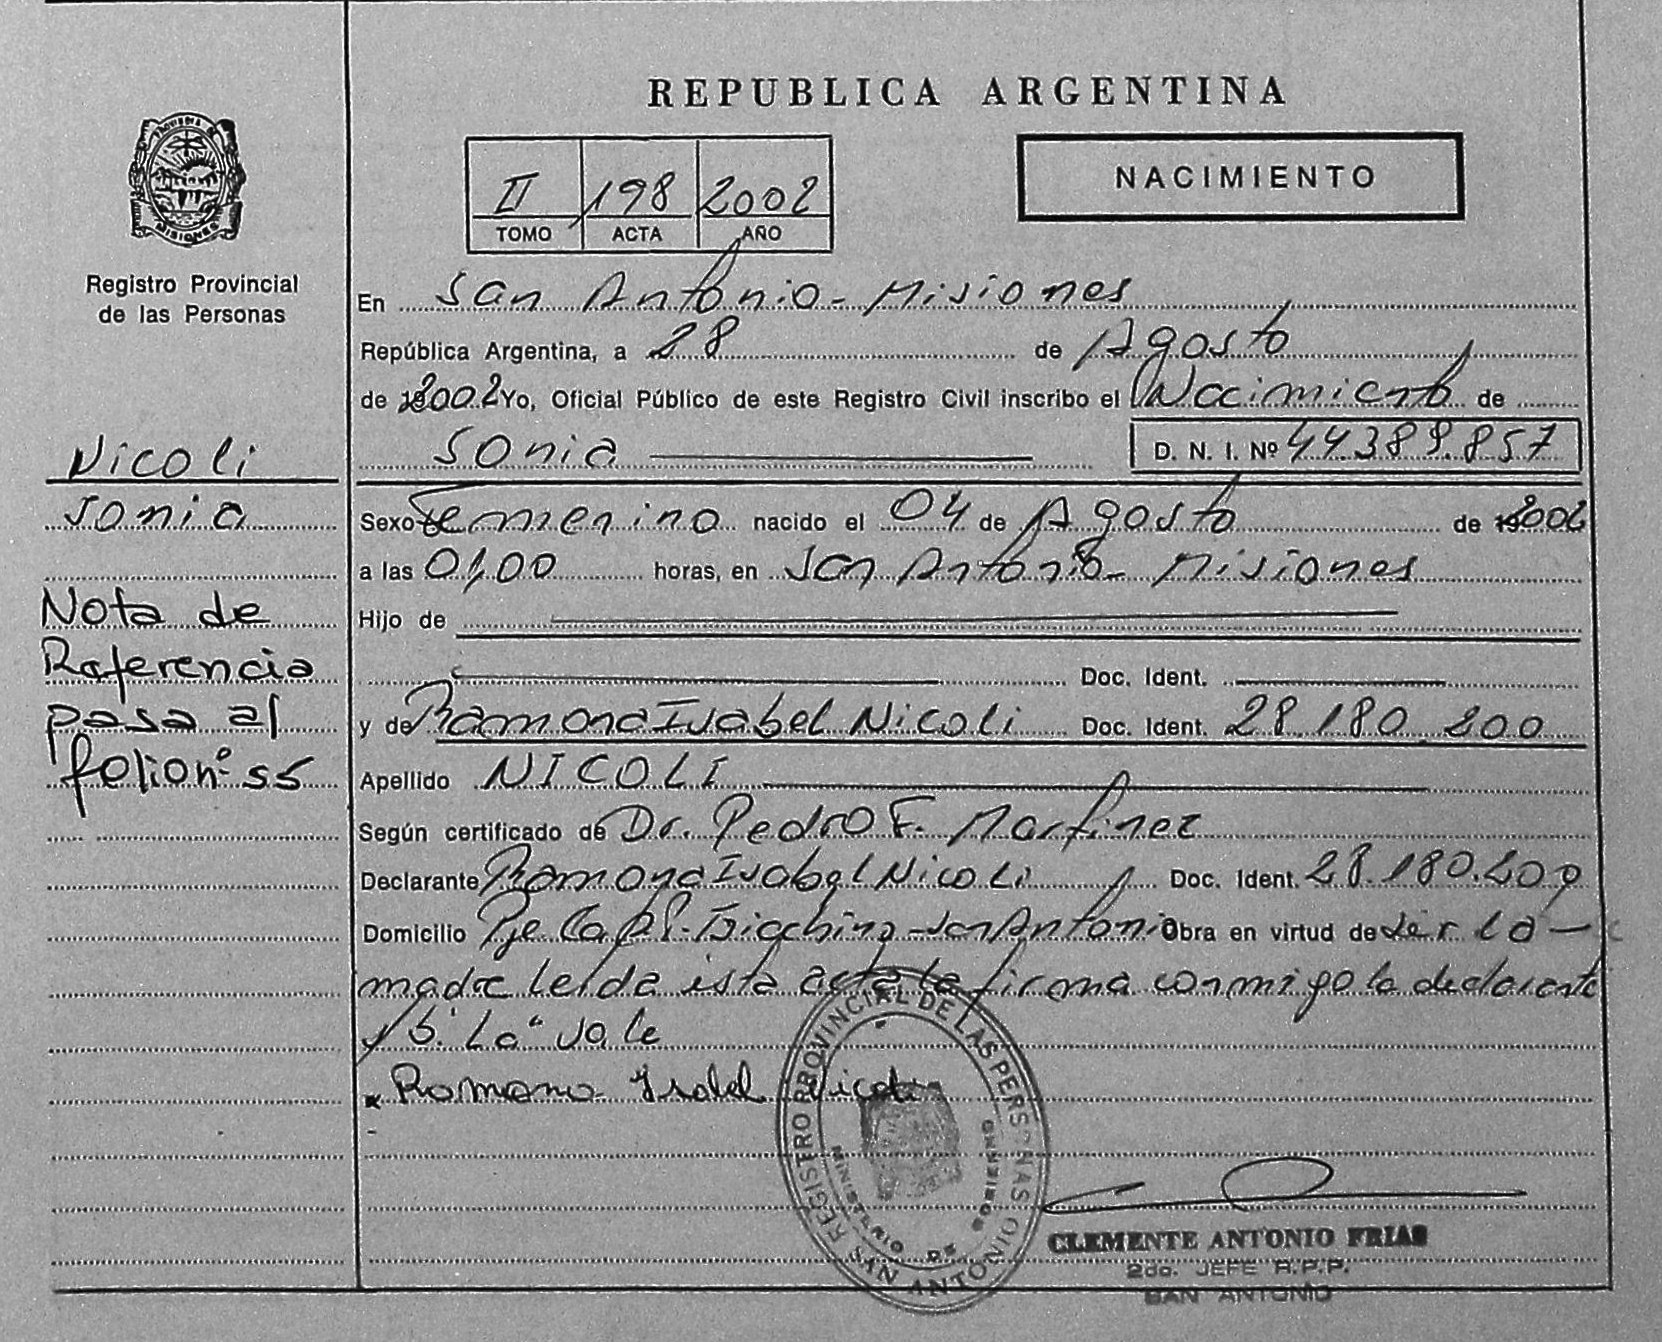 REPUBLICA ARGENTINA
II 198 2002
TOMO ACTA AÑO
NACIMIENTO
PROVINCIA DE
MISIONES
Registro Provincial
de las Personas
Nicoli
Sonia
Nota de
Referencia
pasa al
folio nº 55
En San Antonio - Misiones
República Argentina, a 28 de Agosto
de 2002 Yo, Oficial Público de este Registro Civil inscribo el Nacimiento de
Sonia D. N. I. Nº 44389.857
Sexo Femenino nacido el 04 de Agosto de 2002
a las 01,00 horas, en San Antonio - Misiones
Hijo de
Doc. Ident.
y de Ramona Isabel Nicoli Doc. Ident. 28.180.200
Apellido NICOLI
Según certificado de Dr. Pedro F. Martinez
Declarante Ramona Isabel Nicoli Doc. Ident. 28.180.200
Domicilio - San Antonio Obra en virtud de ser la -
madre leída esta acta la firma conmigo la declarante
"La" vale
x Ramona Isabel Nicoli
REGISTRO PROVINCIAL DE LAS PERSONAS
MINISTERIO DE GOBIERNO
SAN ANTONIO
CLEMENTE ANTONIO FRIAS
2do. JEFE R.P.P.
SAN ANTONIO